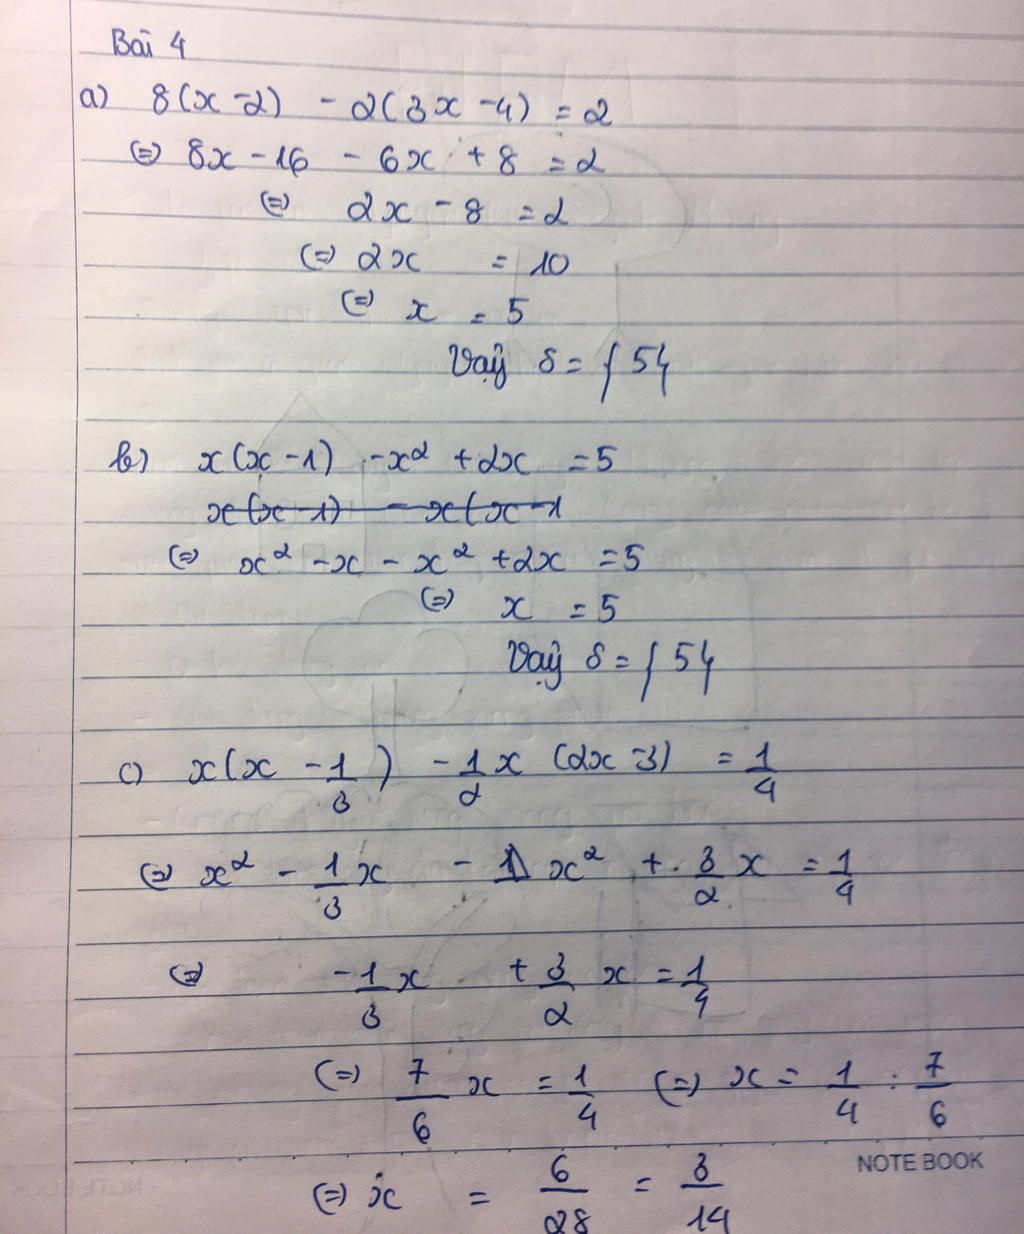 Bài 4
a) 8(x-2) - 2(3x-4) = 2
(=) 8x - 16 - 6x + 8 = 2
(=) 2x - 8 = 2
(=) 2x = 10
(=) x = 5
Vậy S = {5}
b) x(x-1) - x² + 2x = 5
x(x-1) - x(x-1
(=) x² - x - x² + 2x = 5
(=) x = 5
Vậy S = {5}
c) x(x - 1/3) - 1/2 x (2x-3) = 1/4
(=) x² - 1/3 x - 1 x² + 3/2 x = 1/4
(=) - 1/3 x + 3/2 x = 1/4
(=) 7/6 x = 1/4 (=) x = 1/4 : 7/6
NOTE BOOK
(=) x = 6/28 = 3/14